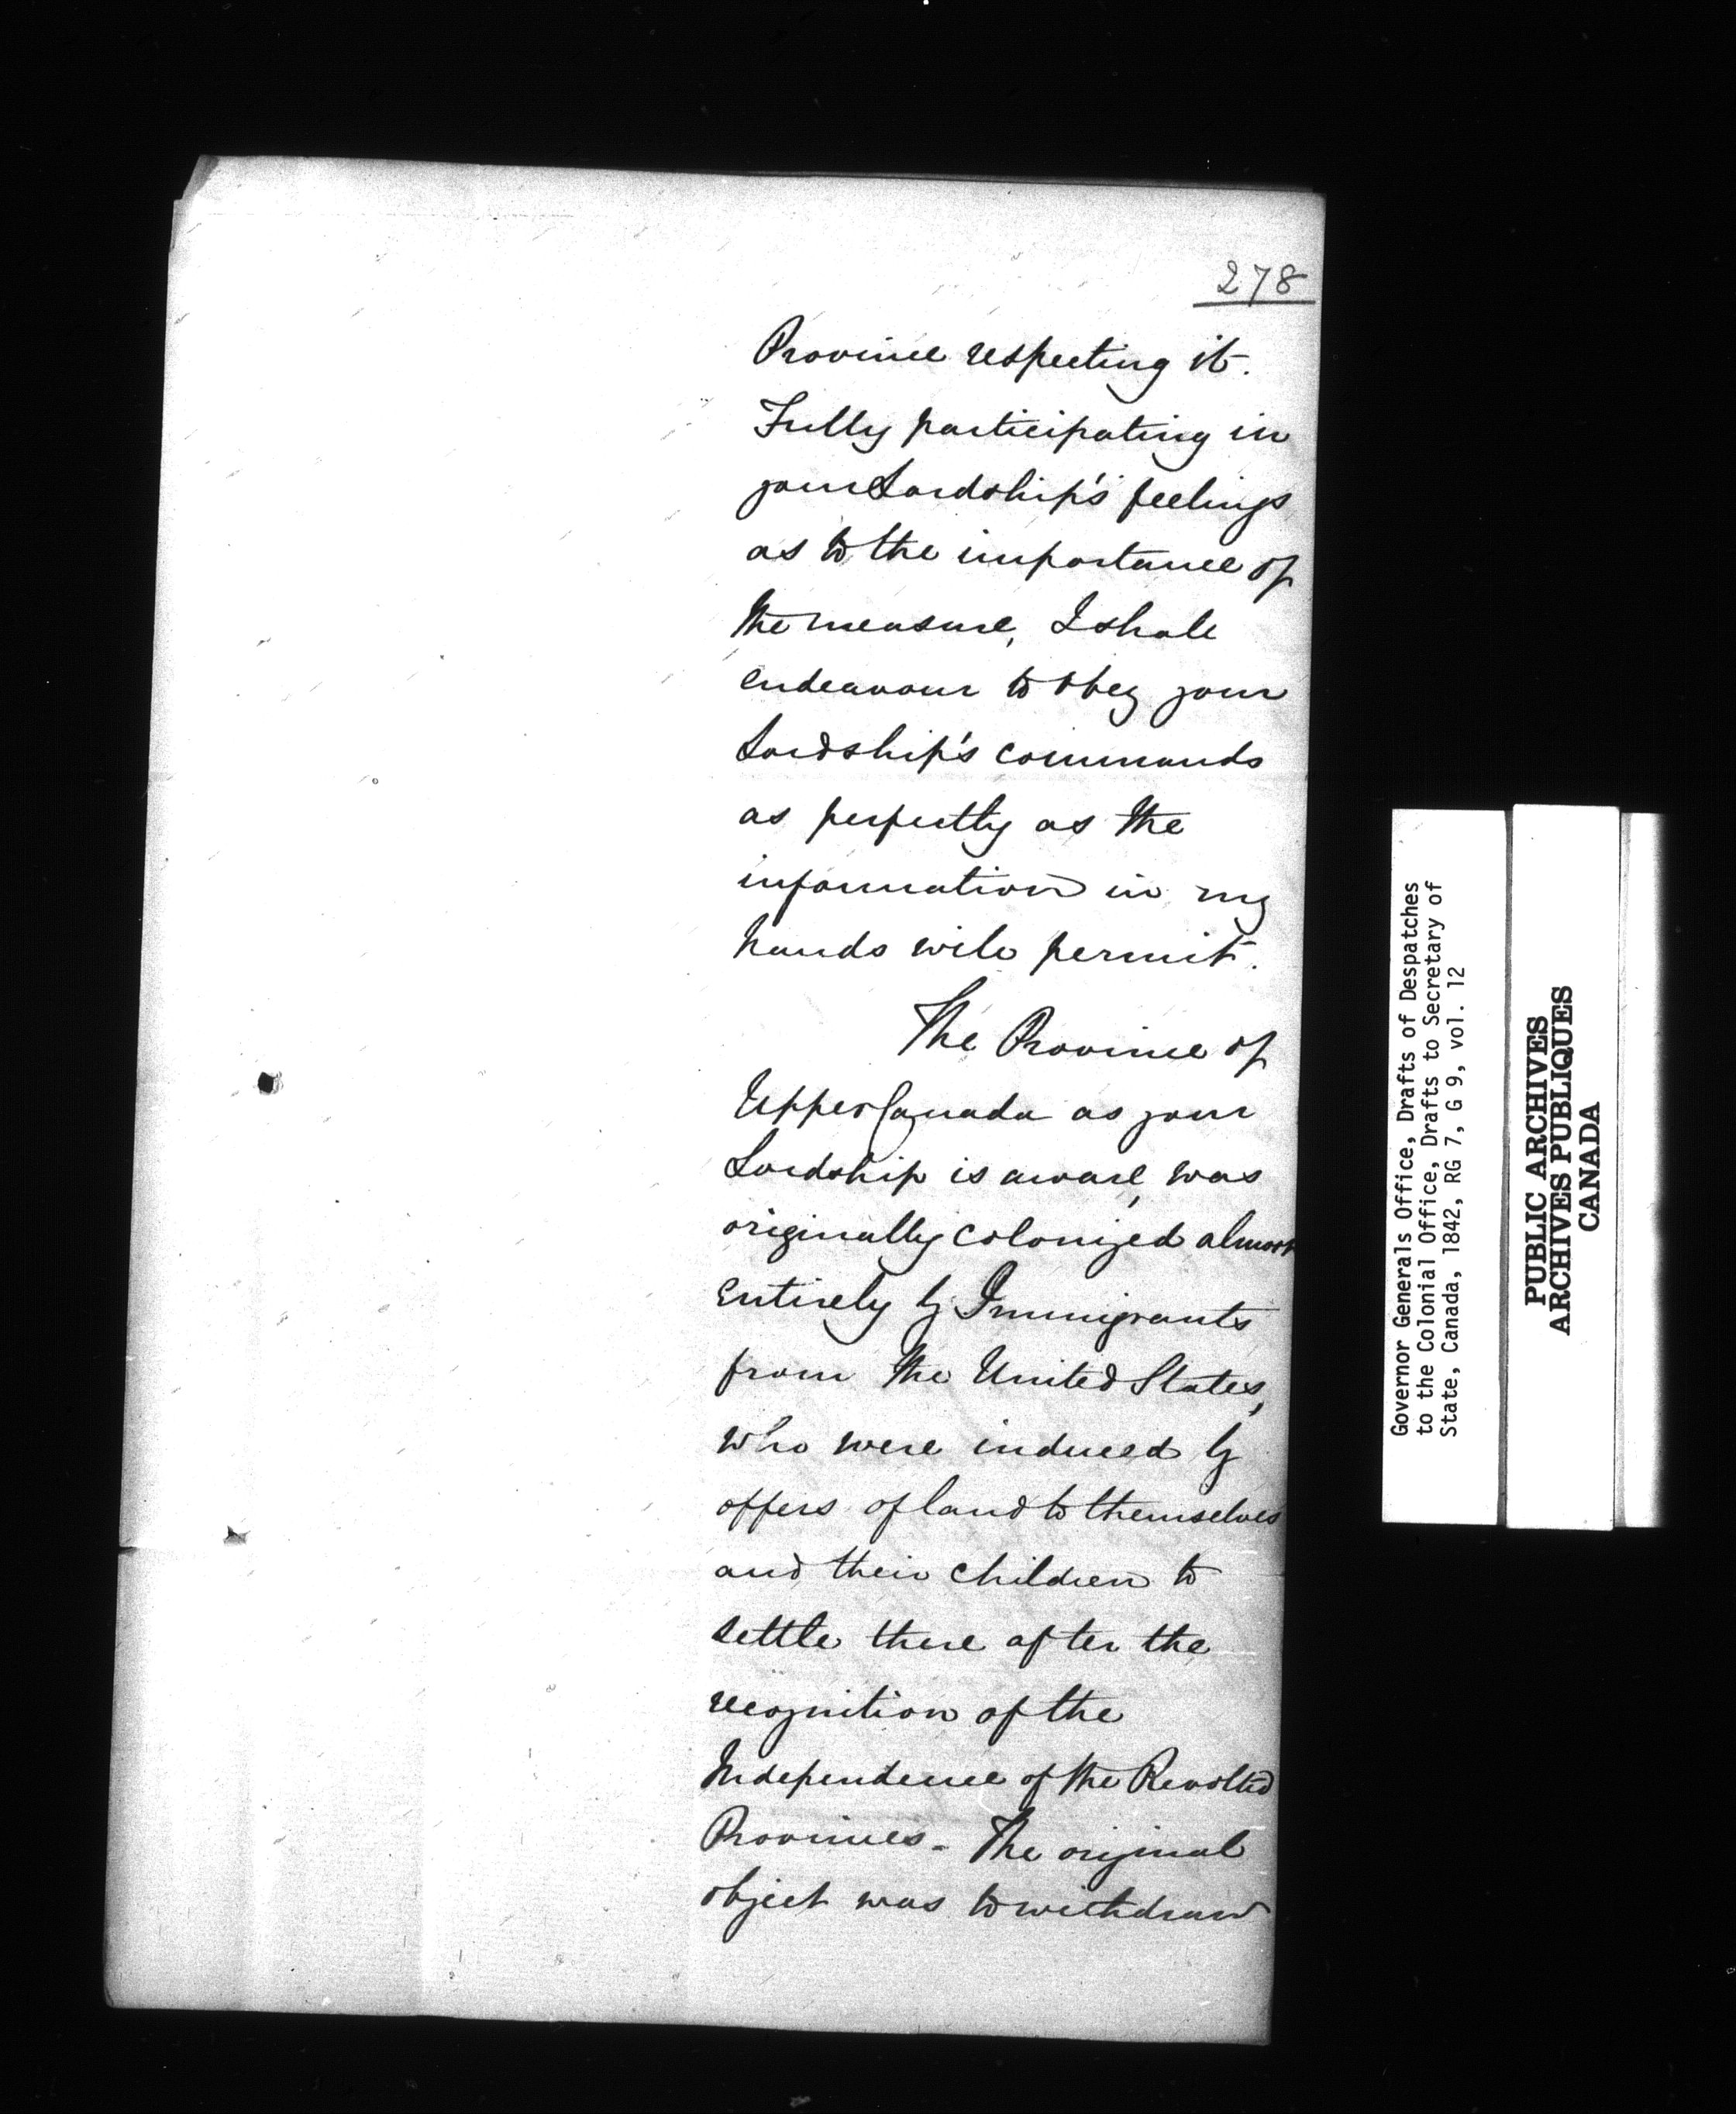 278
Province respecting it.
Fully participating in
your Lordship's feelings
as to the importance of
the measure, I shall
endeavour to obey your
Lordship's commands
as perfectly as the
information in my
hands will permit.
The Province of
Upper Canada as your
Lordship is aware, was
originally colonized almost
entirely by Immigrants
from the United States,
who were induced by
offers of land to themselves
and their children to
settle there after the
recognition of the
Independence of the Revolted
Provinces. The original
object was to withdraw
Governor Generals Office, Drafts of Despatches
to the Colonial Office, Drafts to Secretary of
State, Canada, 1842, RG 7, G 9, vol. 12
PUBLIC ARCHIVES
ARCHIVES PUBLIQUES
CANADA